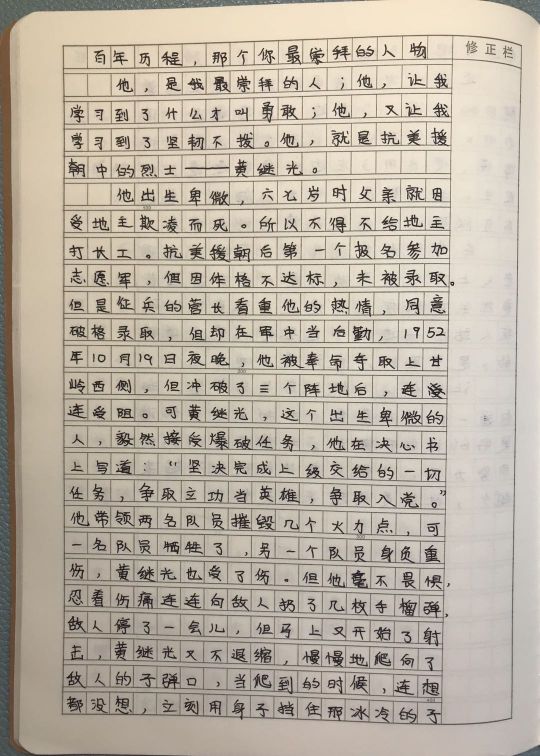 修正栏
百年历程，那个你最崇拜的人物
他，是我最崇拜的人；他，让我
学习到了什么才叫勇敢；他，又让我
学习到了坚韧不拨。他，就是抗美援
朝中的烈士——黄继光。
他出生卑微，六七岁时父亲就因
受地主欺凌而死。所以不得不给地主
打长工。抗美援朝后第一个报名参加
志愿军，但因体格不达标，未被录取。
但是征兵的营长看重他的热情，同意
破格录取，但却在军中当后勤，1952
年10月19日夜晚，他被奉命夺取上甘
岭西侧，但冲破了三个阵地后，连受
连受阻。可黄继光，这个出生卑微的
人，毅然接受爆破任务，他在决心书
上写道：“坚决完成上级交给的一切
任务，争取立功当英雄，争取入党。”
他带领两名队员摧毁几个火力点，可
一名队员牺牲了，另一个队员身负重
伤，黄继光也受了伤。但他毫不畏惧，
忍着伤痛连连向敌人扔了几枚手榴弹，
敌人停了一会儿，但马上又开始了射
击，黄继光又不退缩，慢慢地爬向了
敌人的子弹口，当爬到的时候，连想
都没想，立刻用身子挡住那冰冷的子